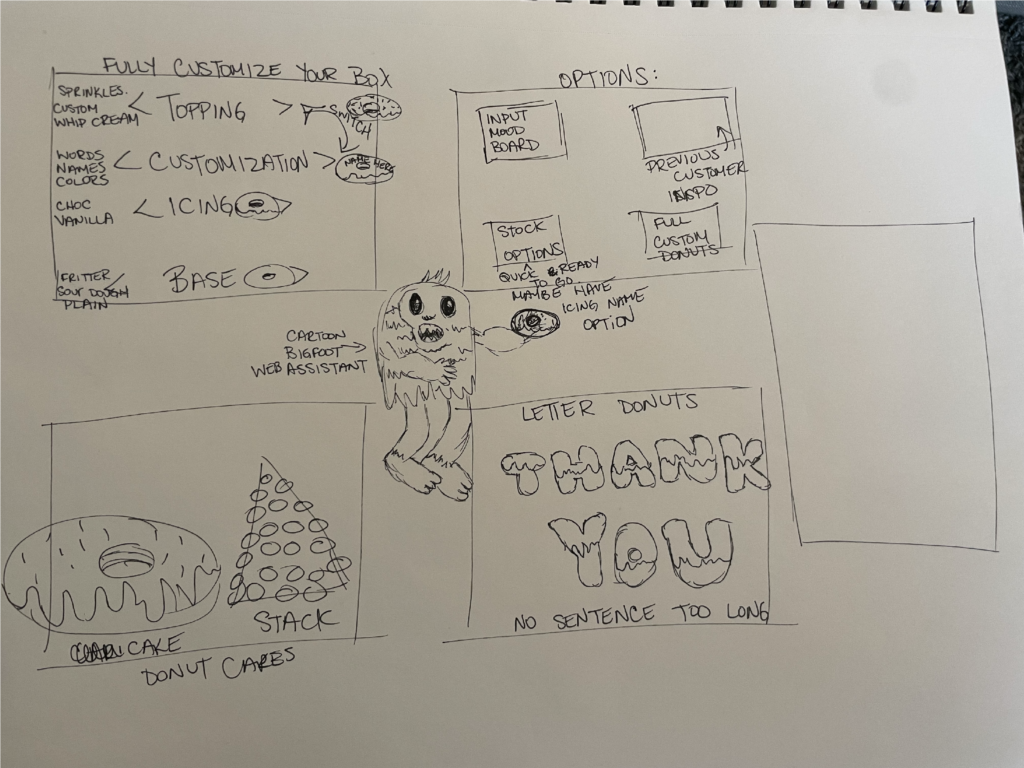 FULLY CUSTOMIZE YOUR BOX
SPRINKLES.
CUSTOM
WHIP CREAM
TOPPING
WORDS
NAMES
COLORS
CUSTOMIZATION
NAME HERE
CHOC
VANILLA
ICING
FRITTER
SOUR DOUGH
PLAIN
BASE
OPTIONS:
INPUT
MOOD
BOARD
PREVIOUS
CUSTOMER
INSPO
STOCK
OPTIONS
QUICK & READY
TO GO
MAYBE HAVE
ICING NAME
OPTION
FULL
CUSTOM
DONUTS
CARTOON
BIGFOOT
WEB ASSISTANT
CAKE
STACK
DONUT CAKES
LETTER DONUTS
THANK
YOU
NO SENTENCE TOO LONG